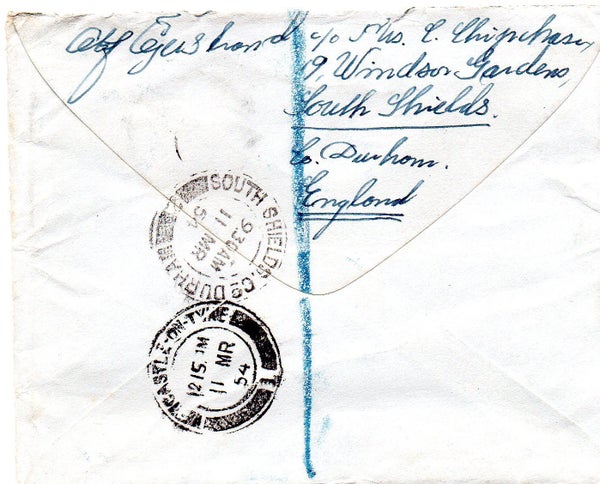 c/o Mrs. E. Chipchase,
19, Windsor Gardens,
South Shields.
Co. Durham.
England
SOUTH SHIELDS. CO. DURHAM
9 30 AM
11 MR
54
NEWCASTLE-ON-TYNE
12 15 PM
11 MR
54
1